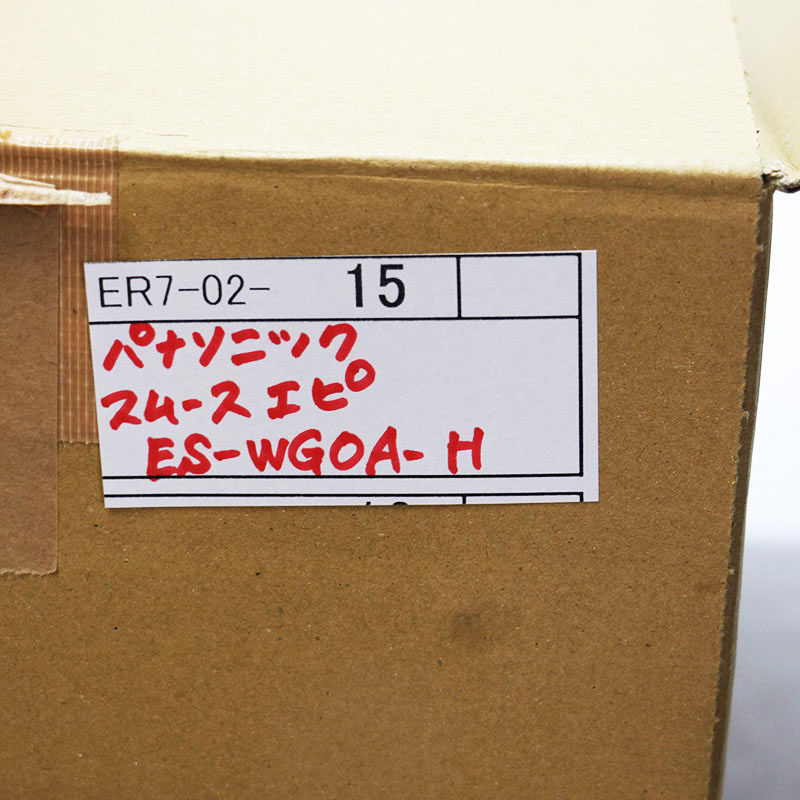 ER7-02- 15
パナソニック
スムースエピ
ES-WG0A-H